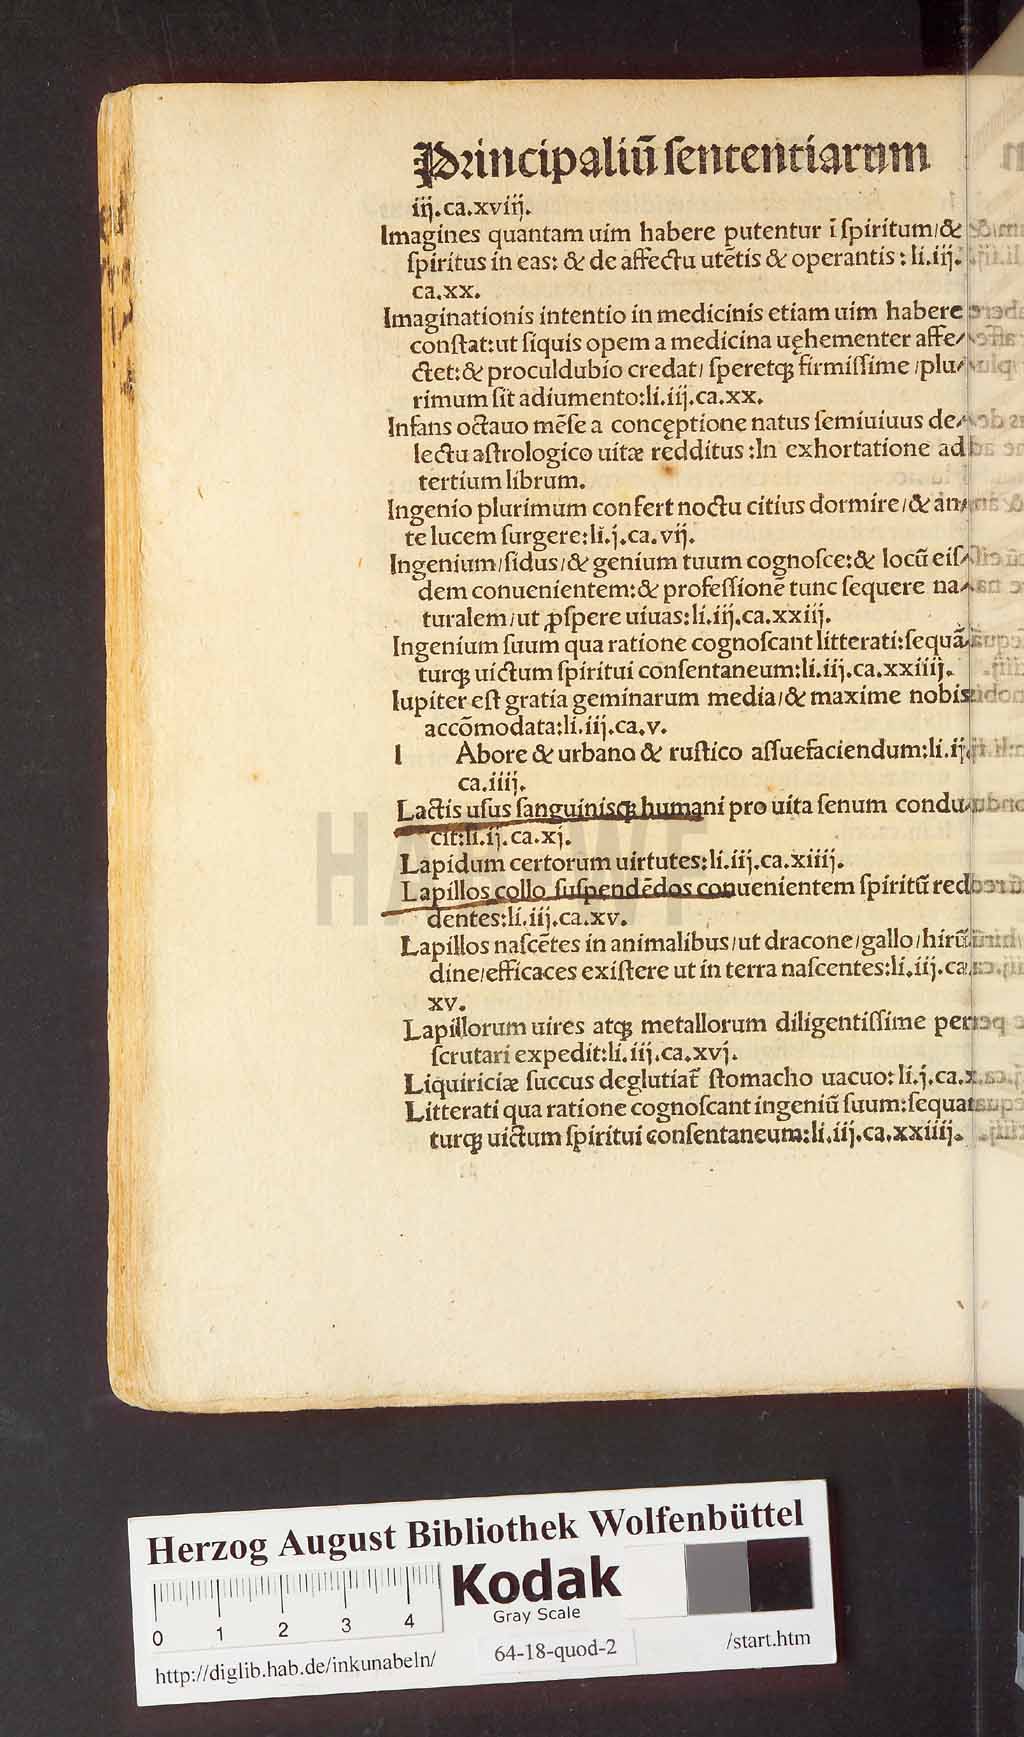 Principaliū ſententiarum
iij.ca.xviij.
Imagines quantam uim habere putentur ī ſpiritum/&
ſpiritus in eas: & de affectu utētis & operantis: li.iij.
ca.xx.
Imaginationis intentio in medicinis etiam uim habere
conſtat:ut ſiquis opem a medicina uęhementer affe/
ctet:& proculdubio credat/ ſperetꝗ firmiſſime/plu/
rimum ſit adiumento:li.iij.ca.xx.
Infans octauo mēſe a concęptione natus ſemiuiuus de/
lectu aſtrologico uitæ redditus:In exhortatione ad
tertium librum.
Ingenio plurimum confert noctu citius dormire/& an/
te lucem ſurgere:li.j.ca.vij.
Ingenium/ſidus/& genium tuum cognoſce:& locū eiſ/
dem conuenientem:& profeſſionē tunc ſequere na/
turalem/ut ꝓſpere uiuas:li.iij.ca.xxiij.
Ingenium ſuum qua ratione cognoſcant litterati:ſequā
turꝗ uictum ſpiritui conſentaneum:li.iij.ca.xxiiij.
Iupiter eſt gratia geminarum media/& maxime nobis
accōmodata:li.iij.ca.v.
l Abore & urbano & ruſtico aſſuefaciendum:li.ij.
ca.iiij.
Lactis uſus ſanguinisꝗ humani pro uita ſenum condu/
cit:li.ij.ca.xj.
Lapidum certorum uirtutes:li.iij.ca.xiiij.
Lapillos collo ſuſpendēdos conuenientem ſpiritū red
dentes:li.iij.ca.xv.
Lapillos naſcētes in animalibus/ut dracone/gallo/hirū
dine/efficaces exiſtere ut in terra naſcentes:li.iij.ca.
xv.
Lapillorum uires atꝗ metallorum diligentiſſime per
ſcrutari expedit:li.iij.ca.xvj.
Liquiriciæ ſuccus deglutiat᷑ ſtomacho uacuo: li.j.ca.x.
Litterati qua ratione cognoſcant ingeniū ſuum:ſequan
turꝗ uictum ſpiritui conſentaneum:li.iij.ca.xxiiij.
Herzog August Bibliothek Wolfenbüttel
Kodak
Gray Scale
0 1 2 3 4
64-18-quod-2
http://diglib.hab.de/inkunabeln/
/start.htm